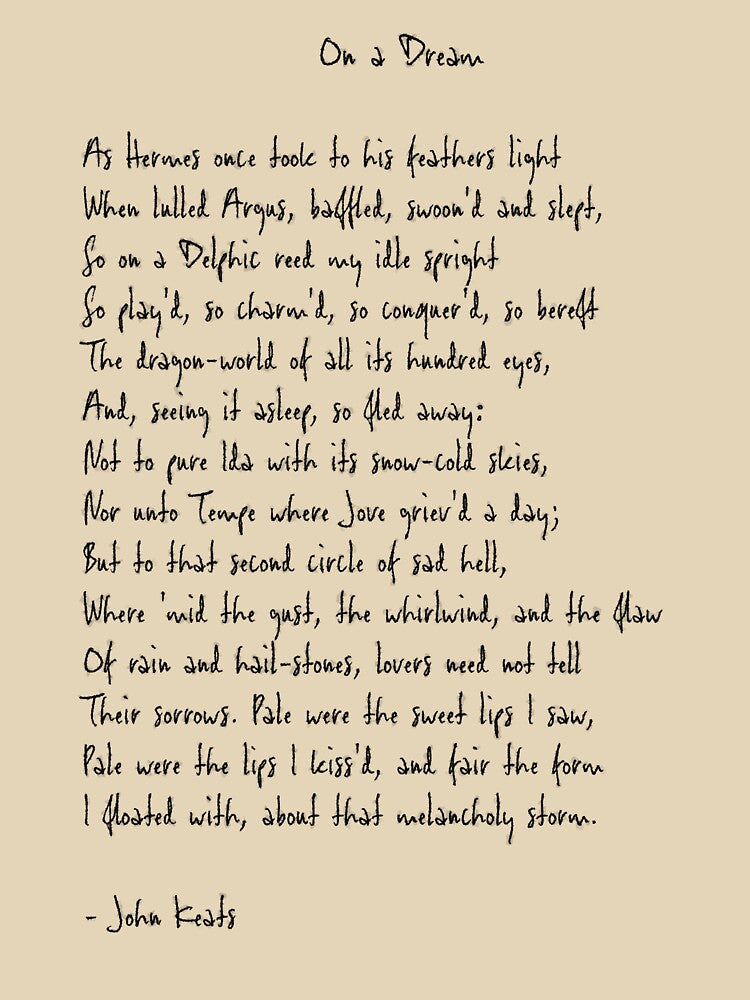 On a Dream
As Hermes once took to his feathers light
When lulled Argus, baffled, swoon'd and slept,
So on a Delphic reed my idle spright
So play'd, so charm'd, so conquer'd, so bereft
The dragon-world of all its hundred eyes,
And, seeing it asleep, so fled away:
Not to pure Ida with its snow-cold skies,
Nor unto Tempe where Jove griev'd a day;
But to that second circle of sad hell,
Where 'mid the gust, the whirlwind, and the flaw
Of rain and hail-stones, lovers need not tell
Their sorrows. Pale were the sweet lips I saw,
Pale were the lips I kiss'd, and fair the form
I floated with, about that melancholy storm.
- John Keats